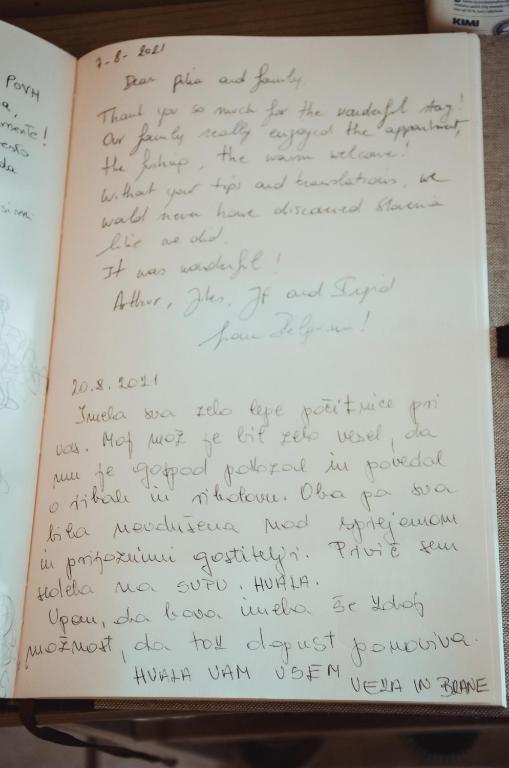 POVH
a,
mente!
esto
da
KIMI
7-8-2021
Dear and family,
Thank you so much for the wonderful stay!
Our family really enjoyed the appartment,
the fishing, the warm welcome!
Without your tips and translations, we
would never have discovered Slovenia
like we did.
It was wonderful!
Arthur, Jules, and
from Belgium!
20.8.2021
Imela sva zelo lepe počitnice pri
vas. Moj mož je bil zelo vesel, da
mu je gospod pokazal in povedal
o ribah in ribolovu. Oba pa sva
bila navdušena nad sprejemom
in prijaznimi gostitelji. Prvič sem
sedela na SUPU. HVALA.
Upam, da bova imela še kdaj
možnost, da tak dopust ponoviva.
HVALA VAM VSEM
IN BRANE